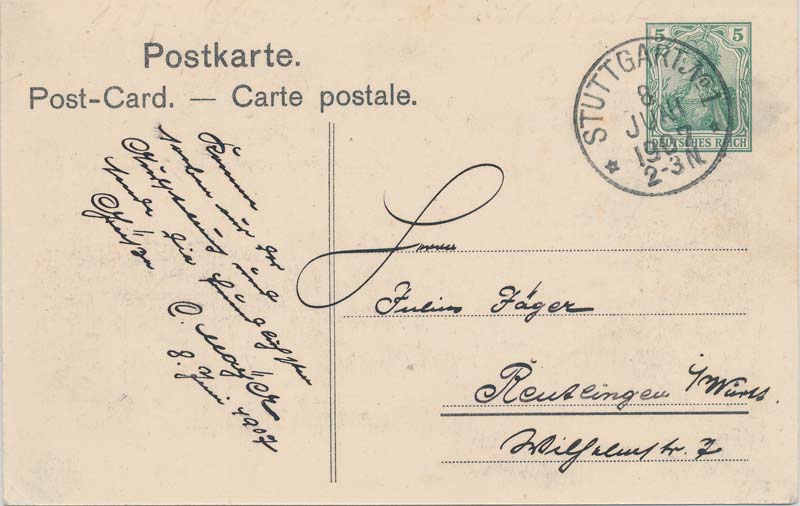 Postkarte.
Post-Card. — Carte postale.
5 5
DEUTSCHES REICH
STUTTGART. No 1
8
JUNI
1907
2-3 N
Komme
und
sende die
Grüße
C. Mayer
8. Juni 1907
Herrn
Julius Jäger
Reutlingen i/Württ.
Wilhelmstr. 7